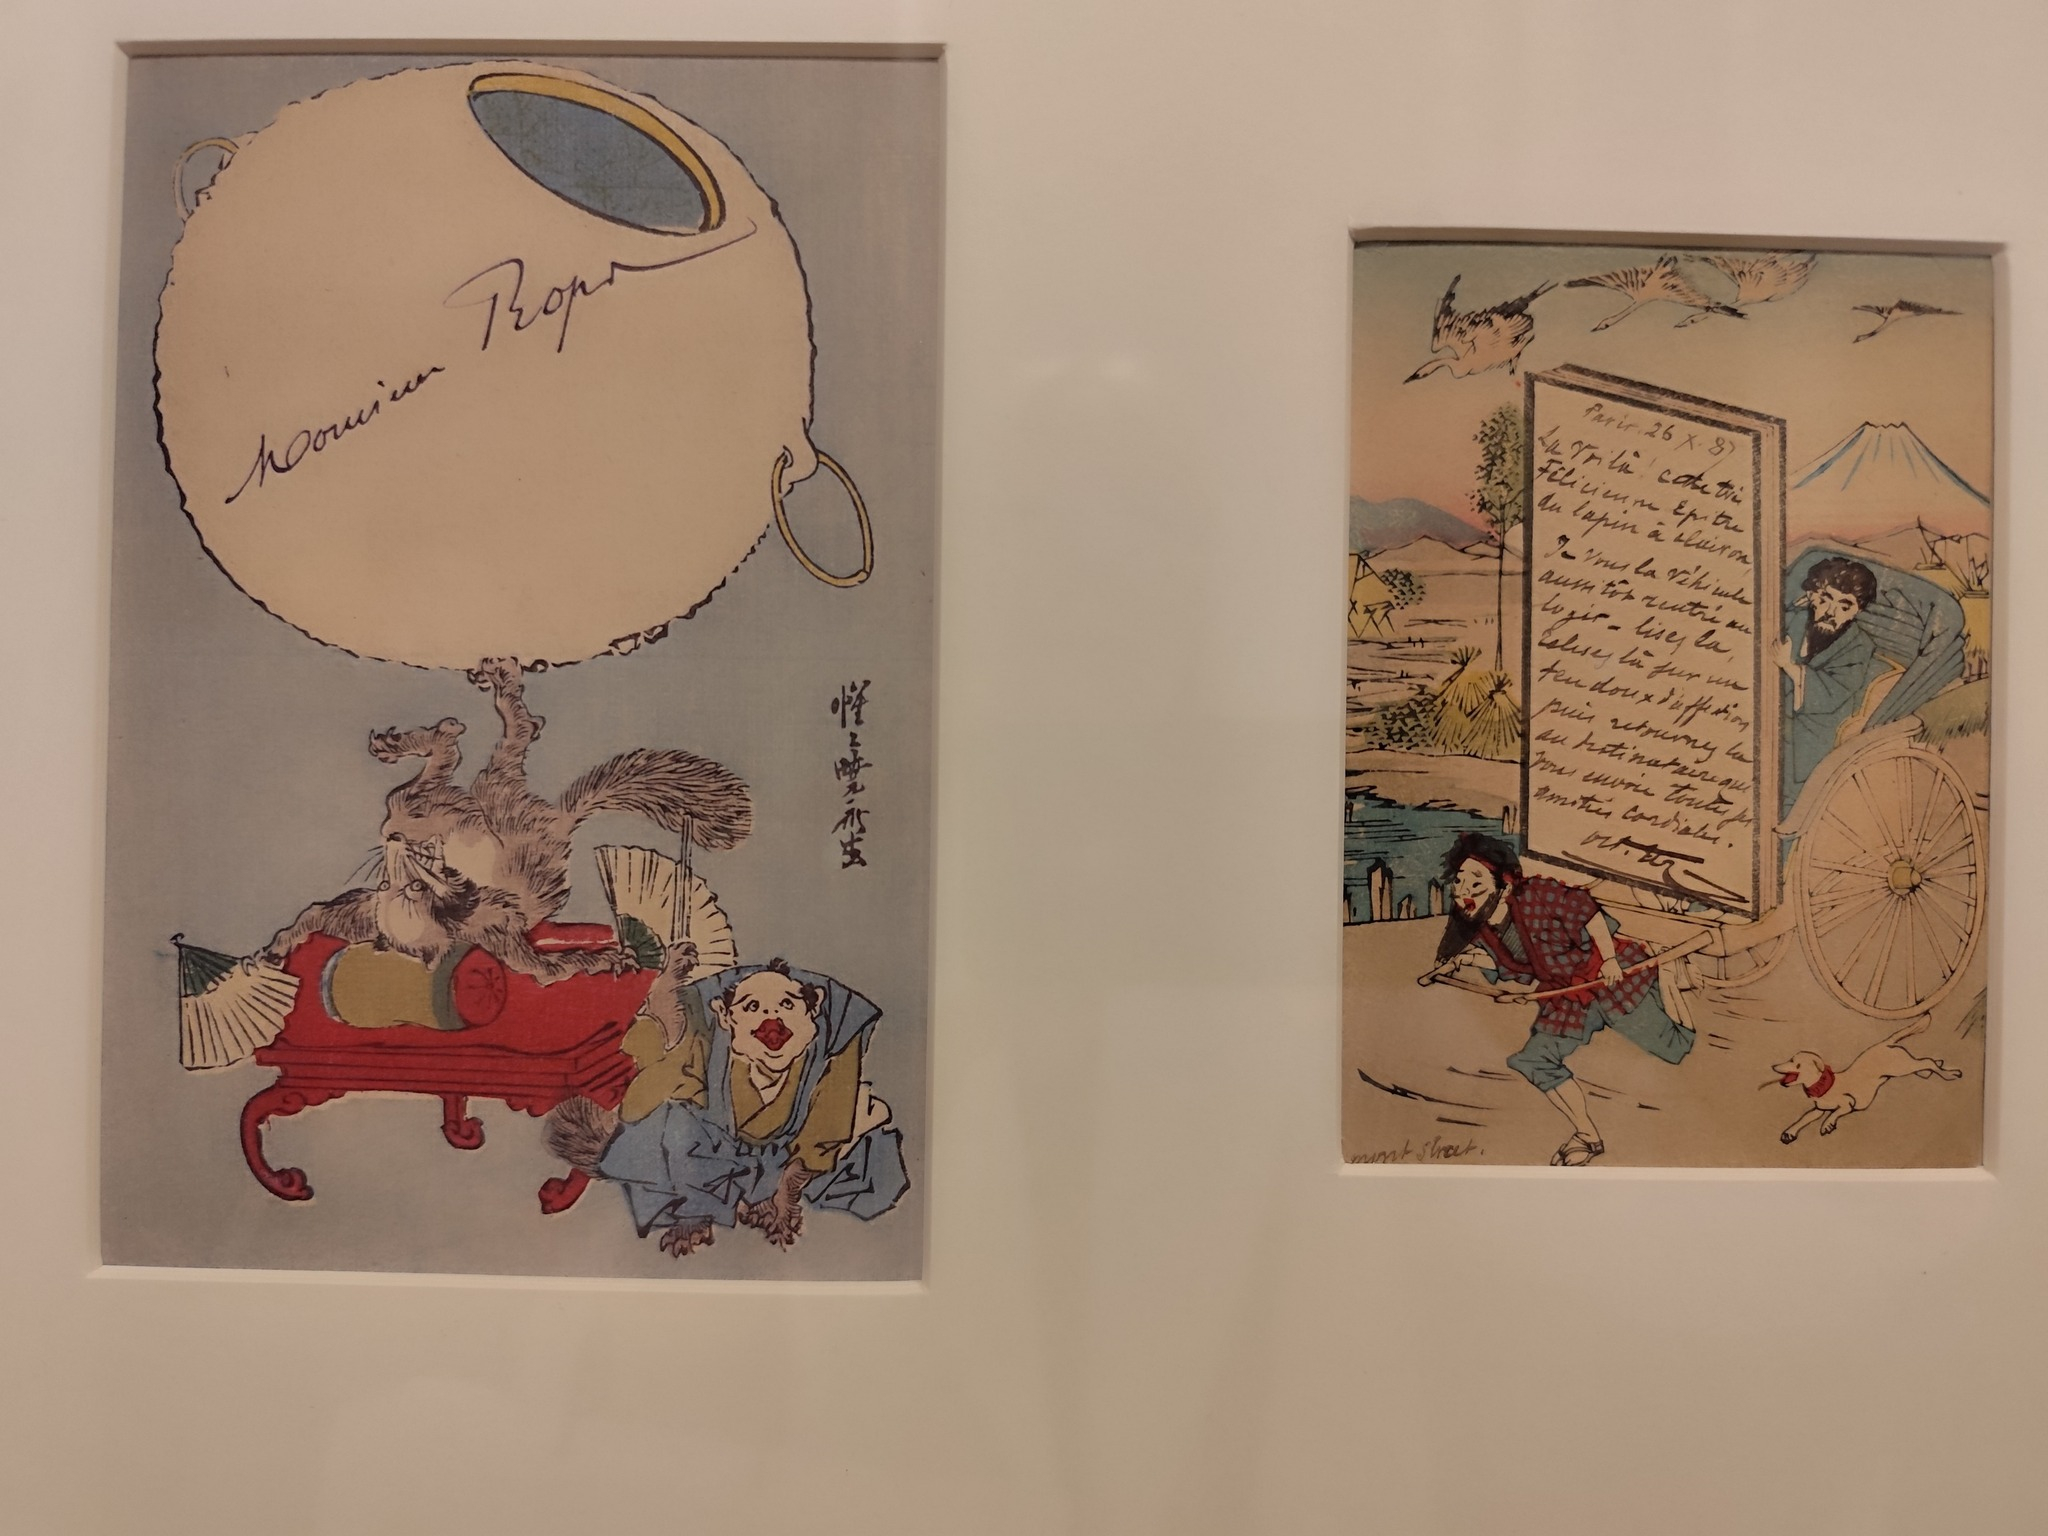 Monsieur Rops
惺々暁斎
Paris. 26 X. 87
La voilà! cette
Félicienne Epitre
du lapin à
Je vous la véhicule
aussitôt rentré au
logis – lisez la,
là sur un
feu doux d'affection
puis retournez la
au destinataire que
vous envoie toutes ses
amitiés cordiales.